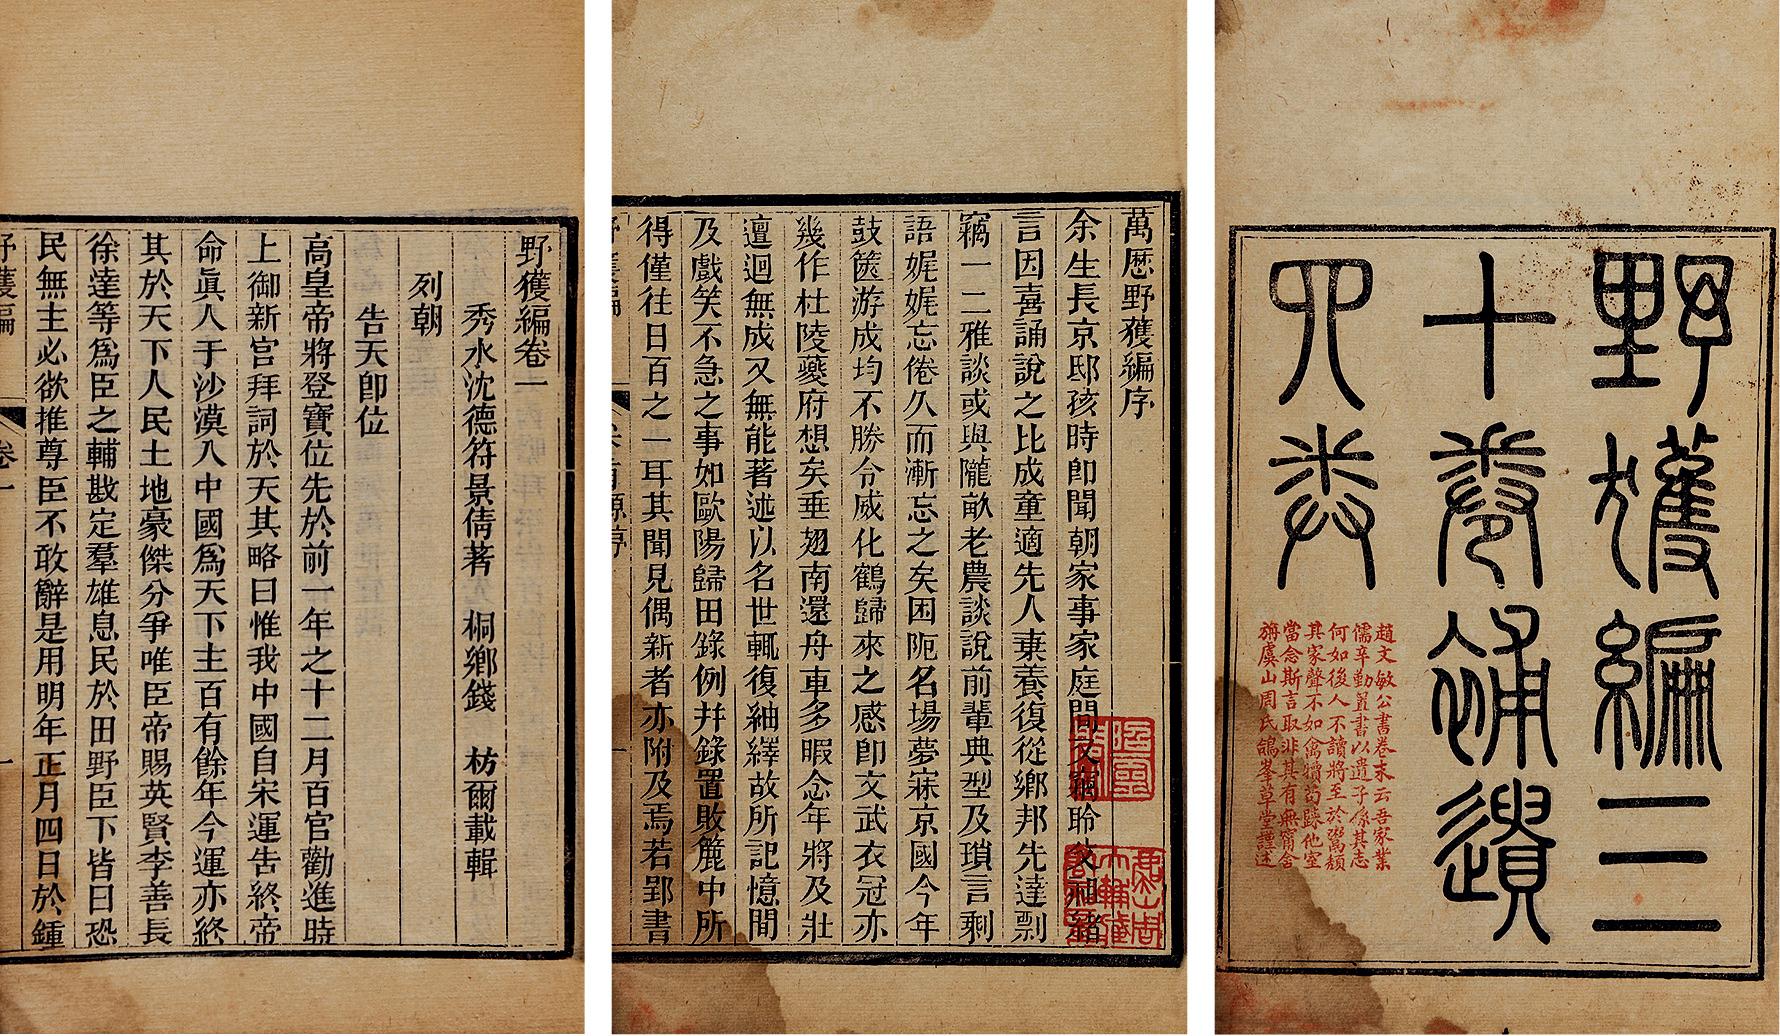 野獲編三
十卷補遺
四卷
趙文敏公書卷末云吾家業
儒辛勤置書以遺子孫其志
何如後人不讀將至於鬻頹
其家聲不如禽犢苟歸他室
當念斯言取非其有無甯舍
旃虞山周氏鴿峯草堂謹述
萬厯野獲編序
余生長京邸孩時卽聞朝家事家庭間又竊聆父祖緒
言因喜誦說之比成童適先人棄養復從鄉邦先達剽
竊一二雅談或與隴畝老農談說前輩典型及瑣言剩
語娓娓忘倦久而漸忘之矣困阨名場夢寐京國今年
鼓篋游成均不勝令威化鶴歸來之感卽文武衣冠亦
幾作杜陵夔府想矣垂翅南還舟車多暇念年將及壯
邅迴無成又無能著述以名世輒復紬繹故所記憶間
及戲笑不急之事如歐陽歸田錄例幷錄置敗簏中所
得僅往日百之一耳其聞見偶新者亦附及焉若郢書
野獲編卷一
秀水沈德符景倩著　桐鄉錢　枋爾載輯
列朝
告天卽位
高皇帝將登寶位先於前一年之十二月百官勸進時
上御新宮拜詞於天其略曰惟我中國自宋運告終帝
命眞人于沙漠入中國爲天下主百有餘年今運亦終
其於天下人民土地豪傑分爭唯臣帝賜英賢李善長
徐達等爲臣之輔戡定羣雄息民於田野臣下皆曰恐
民無主必欲推尊臣不敢辭是用明年正月四日於鍾
野獲編　卷一　一